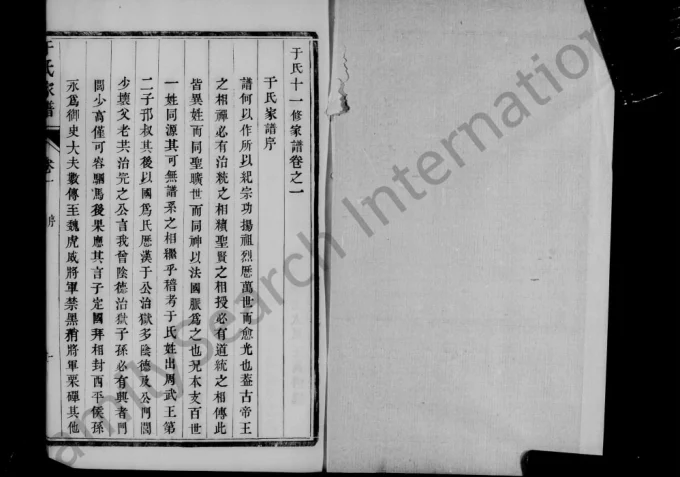 于氏十一修家譜卷之一
于氏家譜序
譜何以作所以紀宗功揚祖烈歷萬世而愈光也蓋古帝王
之相禪必有治統之相續聖賢之相授必有道統之相傳此
皆異姓而同聖曠世而同神以法國脈為之也況本支百世
一姓同源其可無譜系之相繼乎稽考于氏姓出周武王第
二子邘叔其後以國為氏歷漢于公治獄多陰德及公門閭
少壞父老共治完之公言我曾陰德治獄子孫必有興者門
閭少高僅可容駟馬後果應其言子定國拜相封西平侯孫
永為御史大夫數傳至魏虎威將軍禁黑矟將軍栗磾其他
于氏家譜
卷一
序
FamilySearch International